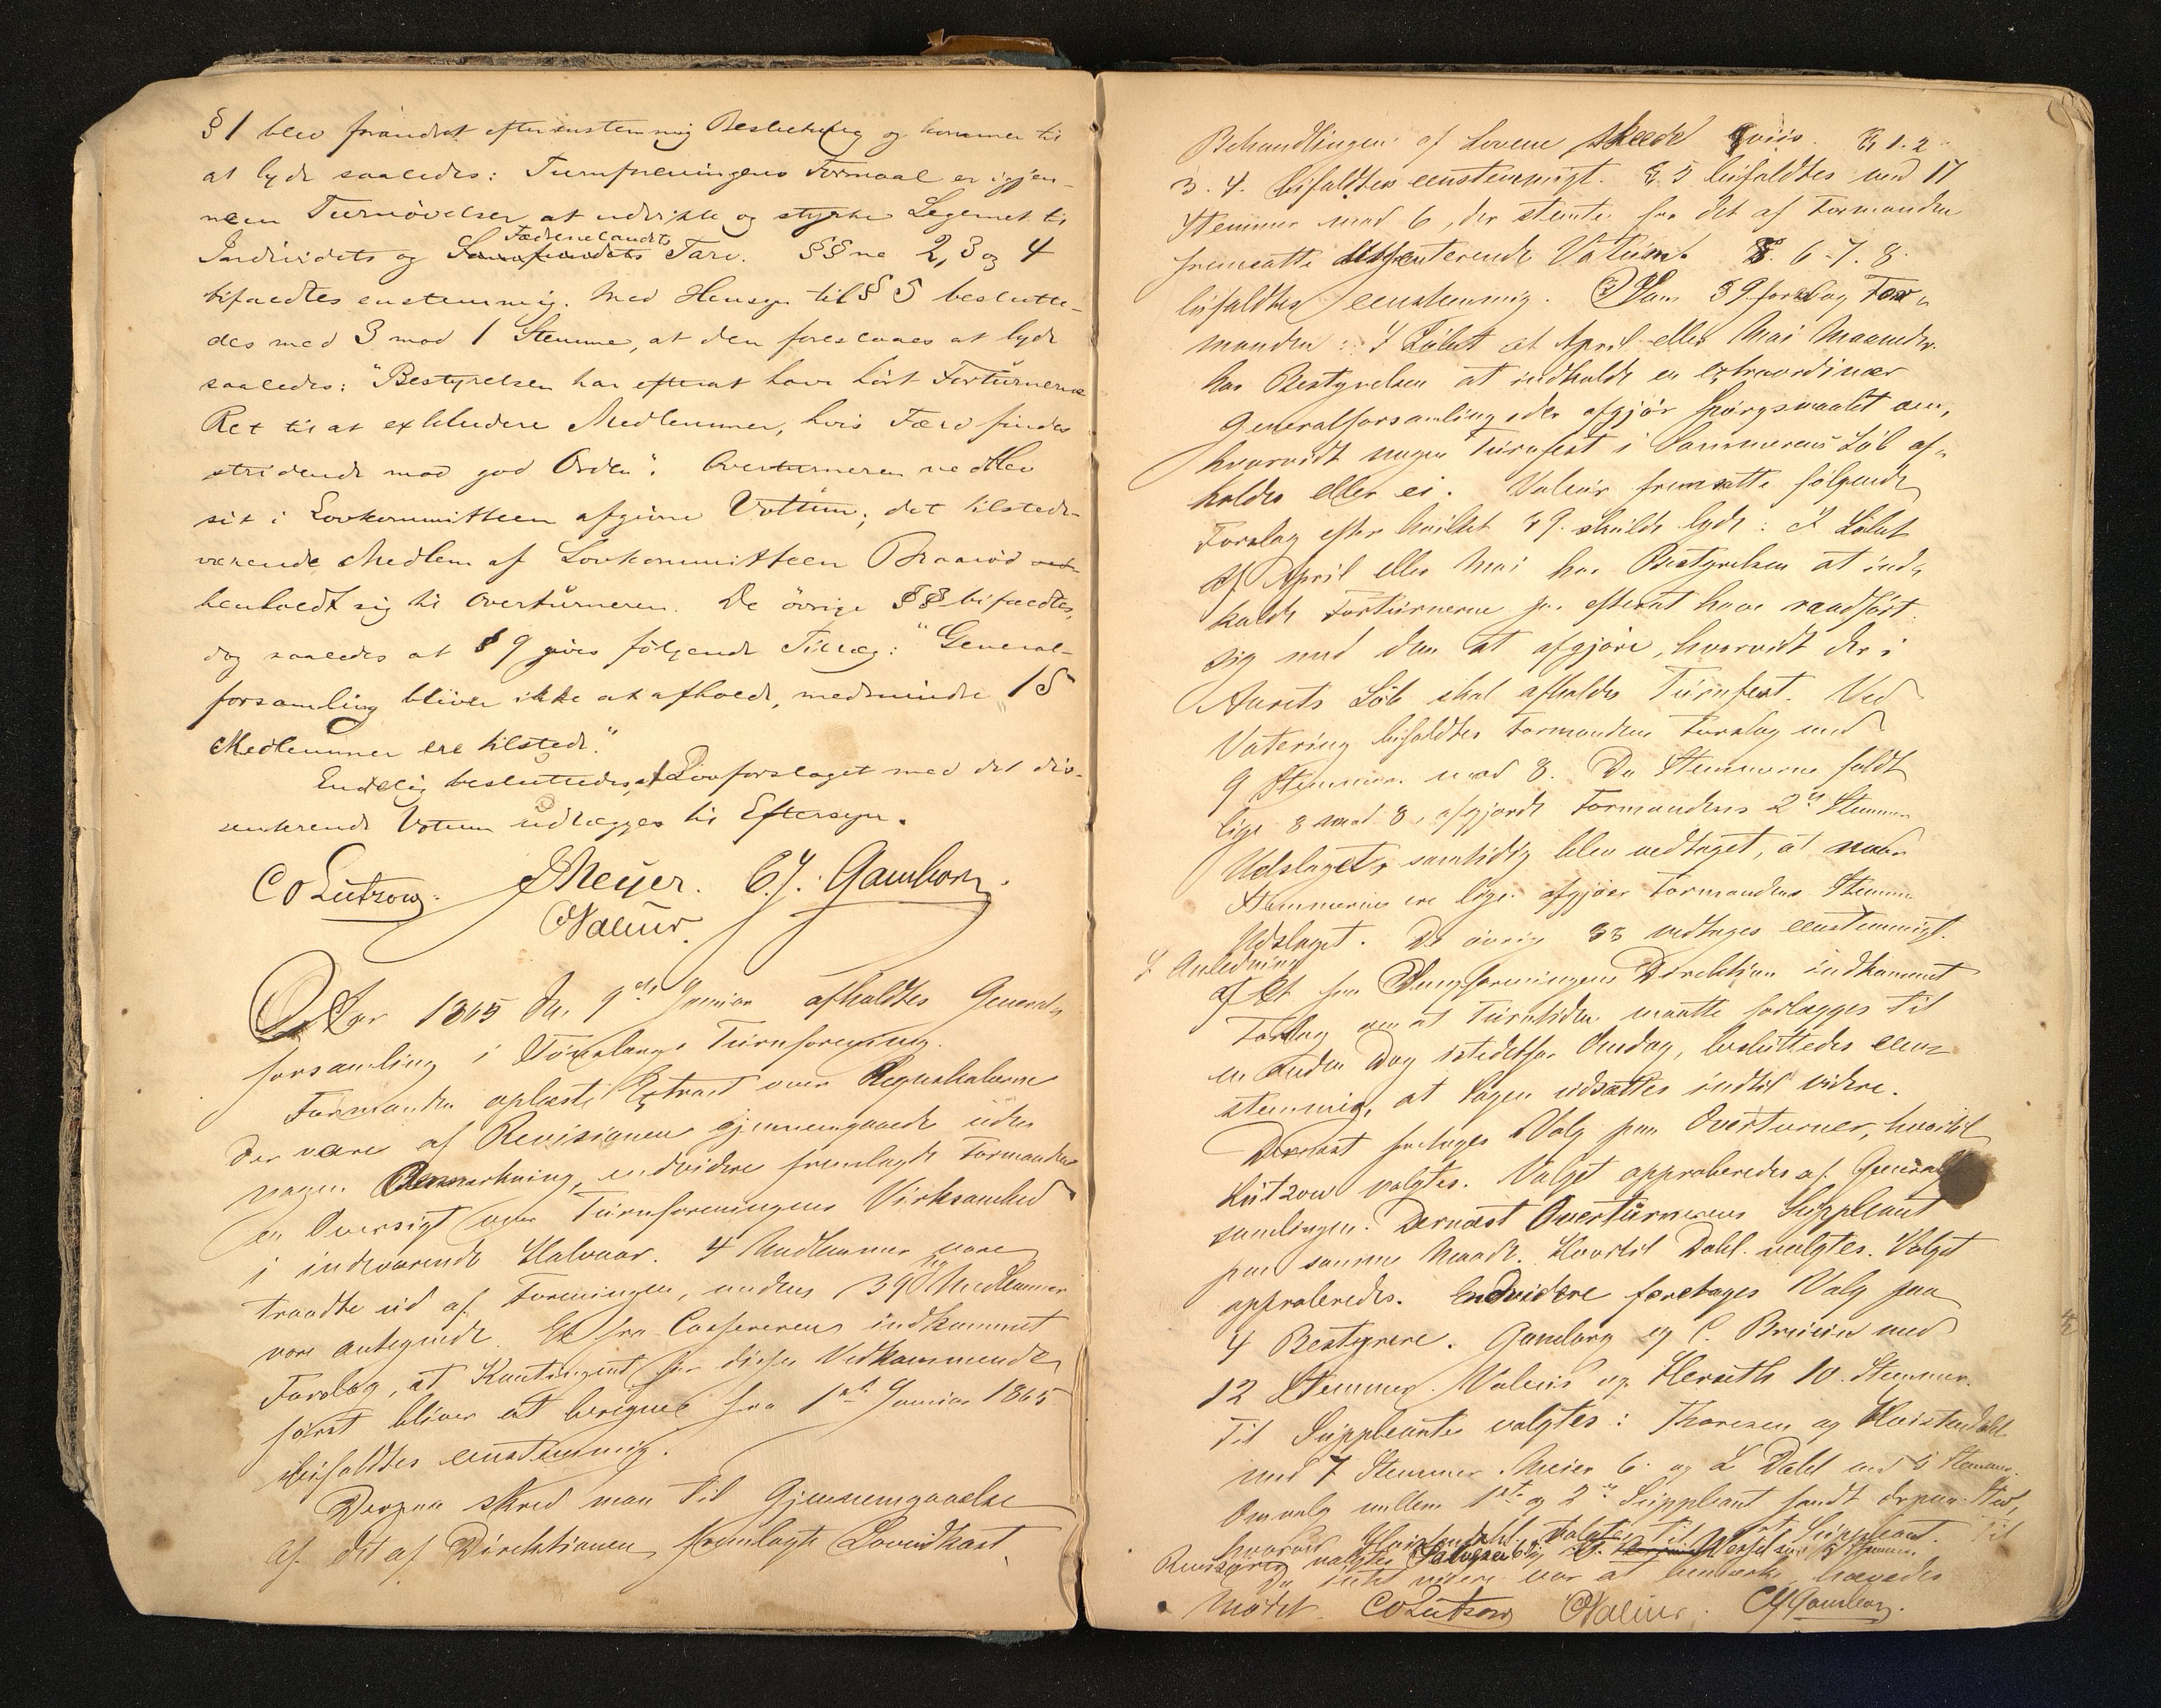 § 1 blev forandret efter enstemmig Beslutning og kommer til
at lyde saaledes: Turnforeningens Formaal er igjen-
nem Turnøvelser at udvikle og styrke Legemet til
Fædrenelandets
Individets og Samfundets Tarv. §§ne 2, 3 og 4
bifaldtes enstemmig. Med Hensyn til § 5 beslutte-
des med 3 mod 1 Stemme, at den foreslaaes at lyde
saaledes: "Bestyrelsen har efterat have hört Forturnerne
Ret til at exkludere Medlemmer, hvis Færd findes
stridende mod god Orden". Overturneren vedblev
sit i Lovkommitteen afgivne Votum; det tilstede-
værende Medlem af Lovkommitteen Braarød
henholdt sig til Overturneren. De övrige §§ bifaldtes,
dog saaledes at § 9 gives fölgende Tillæg: "General-
forsamling bliver ikke at afholde, medmindre 15
Medlemmer ere tilstede."
Endelig besluttedes, at Lovforslaget med det dis-
senterende Votum udlægges til Eftersyn.
C O Lützow. J Meyer. C. J. Gamborg.
Valeur.
Aar 1865 den 9de Januar afholdtes General-
forsamling i Tönsbergs Turnforening.
Formanden oplæste Extract over Regnskaberne
der vare af Revisionen gjennemgaaede uden
nogen Bemærkning, endvidere fremlagde Formanden
en Oversigt over Turnforeningens Virksamhed
i indeværende Halvaar. 4 Medlemmer vare
traadte ud af Foreningen, medens 39 nye Medlemmer
vare antegnede. Et fra Cassereren indkommet
Forslag, at Kontingent for disses Vedkommende
först bliver at beregne fra 1ste Januar 1865
bifaldtes eenstemmig.
Derpaa skred man til Gjennemgaaelse
af det af Direktionen fremlagte Lovudkast.
Behandlingen af Lovene skeede §viis. §§ 1. 2
3. 4. bifaldtes eenstemmigt. § 5 bifaldtes med 17
Stemmer mod 6, der stemte for det af Formanden
fremsatte dissenterende Votum. §. 6-7. 8.
bifaldtes eenstemmig. Som § 9 foreslog For-
manden: I Löbet af April eller Mai Maaneder
har Bestyrelsen at indkalde en extraordinær
Generalforsamling, der afgjör Spörgsmaalet om,
hvorvidt nogen Turnfest i Sommerens Löb af-
holdes eller ei. Valeur fremsatte fölgende
Forslag efter hvilket § 9. skulde lyde: I Löbet
af April eller Mai har Bestyrelsen at ind-
kalde Forturnerne for efterat have raadfört
sig med dem at afgjöre, hvorvidt der i
Aarets Löb skal afholdes Turnfest. Ved
Votering bifaldtes Formandens Forslag med
9 Stemmer mod 8. Da Stemmerne faldt
lige 8 mod 8, afgjorde Formandens 2den Stemme
Udslaget, samtidig blev vedtaget, at naar
Stemmerne ere lige, afgjöer Formandens Stemme
Udslaget. De övrige §§ vedtages eenstemmigt.
I Anledning
af Et fra Sangforeningens Direktion indkommet
Forslag om at Turntiden maatte forlægges til
en anden Dag istedetfor Onsdag, besluttedes een-
stemmig, at Sagen udsættes indtil videre.
Dernæst foretoges Valg paa Overturner, hvortil
Lützow valgtes. Valget approberedes af General-
samlingen. Dernæst Overturnerens Suppleant
paa samme Maade. Hvortil Dahl valgtes. Valget
approberedes. Endvidere foretages Valg paa
4 Bestyrere. Gamborg og C. Bruun med
12 Stemmer. Valeur og Herseth 10. Stemmer.
Til Suppleanter valgtes: Thoresen og Kvistendahl
med 7 Stemmer. Meier 6. og L Dahl med 5 Stemmer.
Omvalg mellem 1ste og 2den Suppleant fandt derpaa Sted,
hvorved Kvistendahl valgtes til 1st Suppleant. Til
Revisorer valgtes
Da intet videre var at bemærke hævedes
Mødet. C O Lützow Valeur. C J Gamborg.